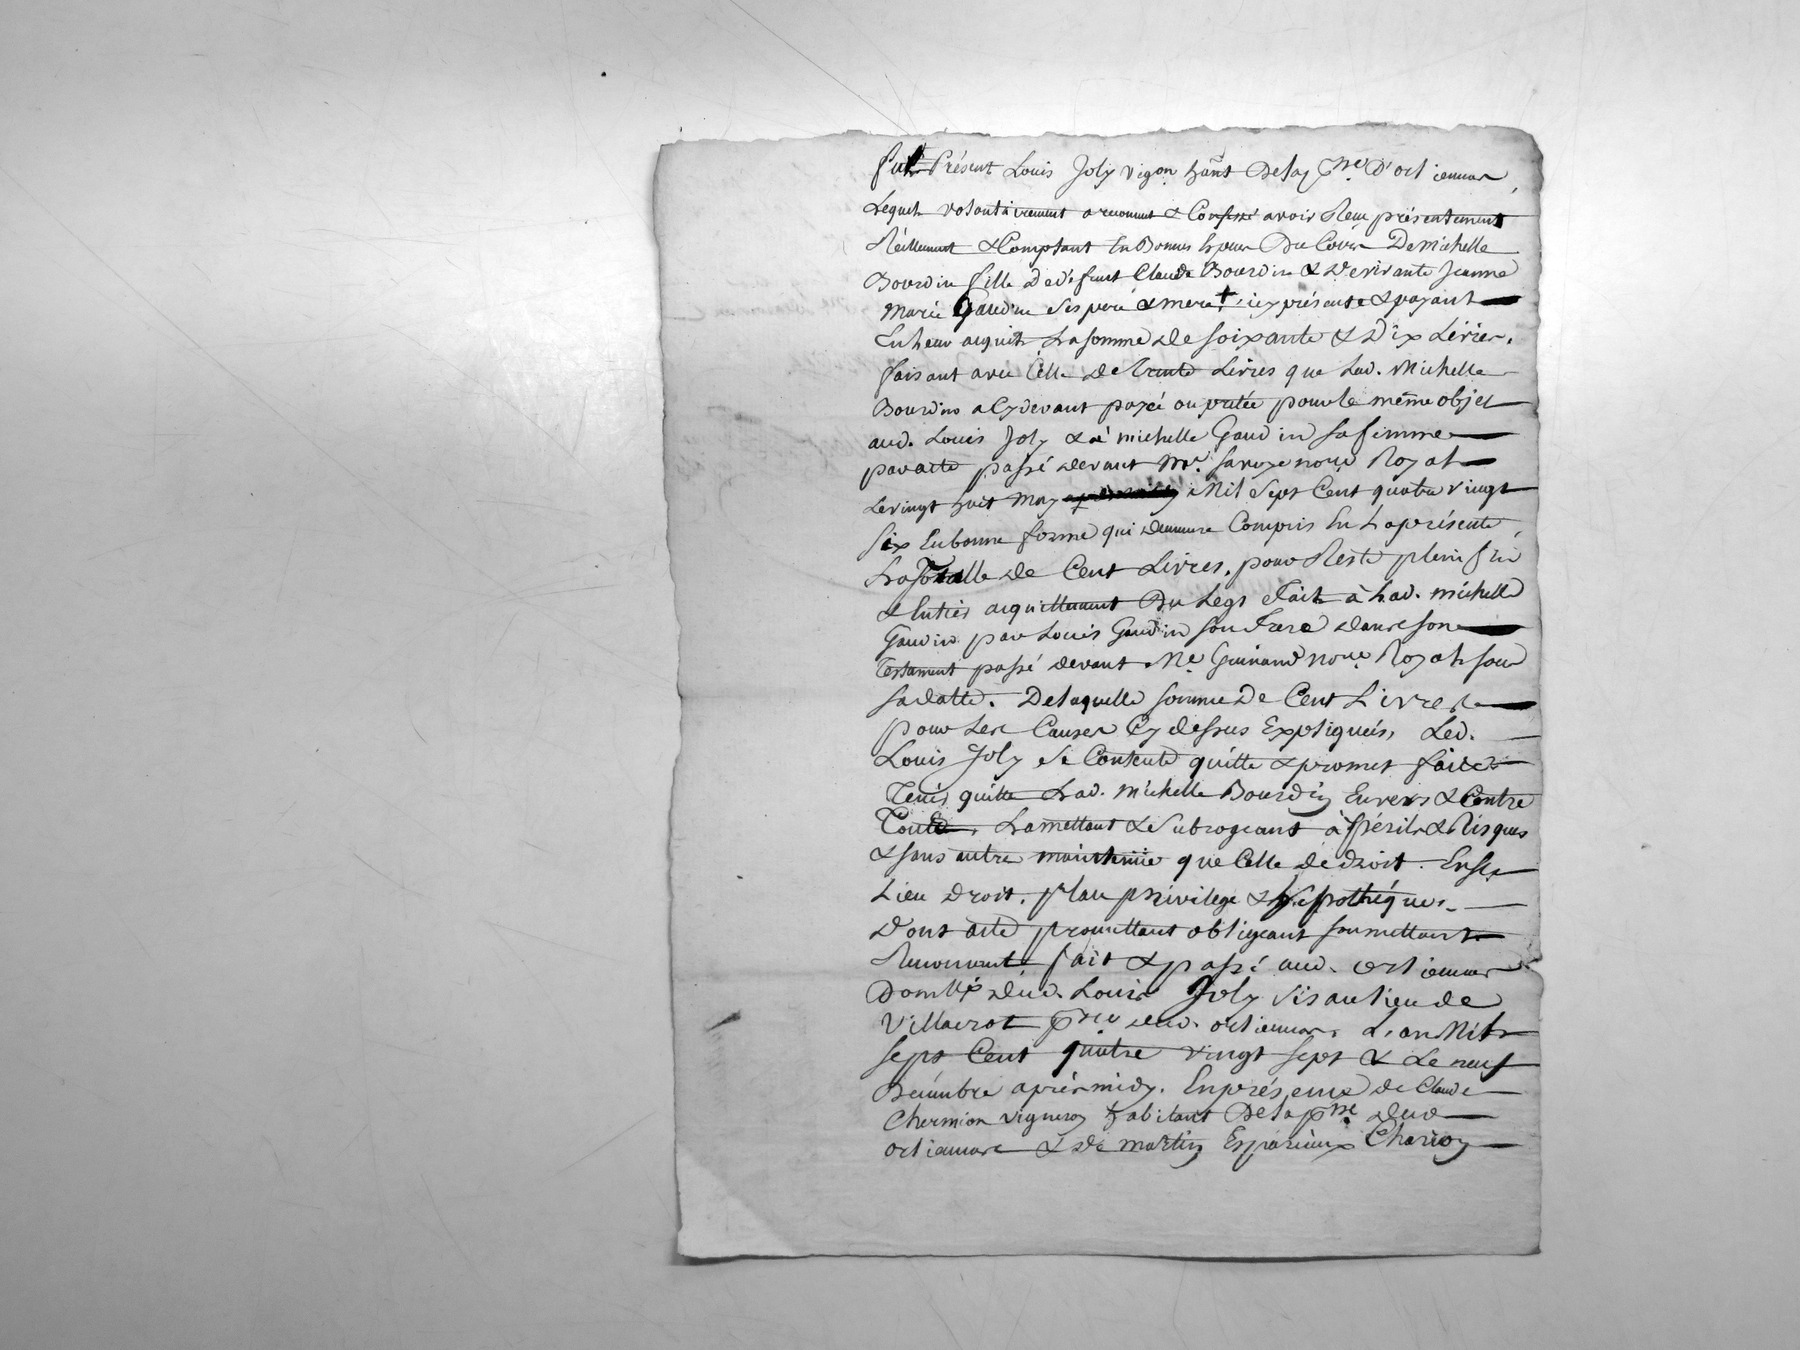 fut Présent Louis Joly vigon hant Delad. psse. D'orl ienuas,
Lequel volontairement a reconnut & Confessé avoir Reçu présentement
Réellement & Comptant En Bonnes heures Du Cours De Michelle
Bourdin fille De défunt Claude Bourdin & De vivante Jeanne
Marie Gaudin Ses pere & mere + icy présente & payant
En heur acquit La somme de soixante & Dix Livres,
faisant avec Celle de Trente Livres que Lad. Michelle
Bourdin a Cydevant payée ou pretée pour le même objet
aud. Louis Joly & à michelle Gaudin sa femme
par acte passé devant Me. Savoye nore Royal
Le vingt huit May Mil Sept Cent quatre vingt
six En bonne forme qui demeure Compris En La présente
La Totalle de Cent Livres, pour Reste plein fin
& Entier acquittement Du Legs Fait à Lad. michelle
Gaudin par Louis Gaudin son frere dans son
Testament passé devant Me. Guinand nore Royal sous
sa datte. De laquelle somme De Cent Livres
pour Les Causes Cy dessus Expliquées, Led.
Louis Joly se Contente quitte & promet faire
Tenir quitte Lad. michelle Bourdin Envers & Contre
Tous, La mettant & Subrogeant à périls & Risques
& sans autre maintenue que Celle de droit. En ses
Lieu Droit, place privilege & hypothéques.
Dont acte promettant obligeant soumettant
Renonçant fait & passé aud.
Domlle dud. Louis Joly sis au lieu de
Villacrot psse dud. L'an Mil
sept Cent quatre vingt sept & Le neuf
Décembre après midy. En présence de Claude
Chermion vigneron habitant De la psse dud
& de martin Esparieux Charron